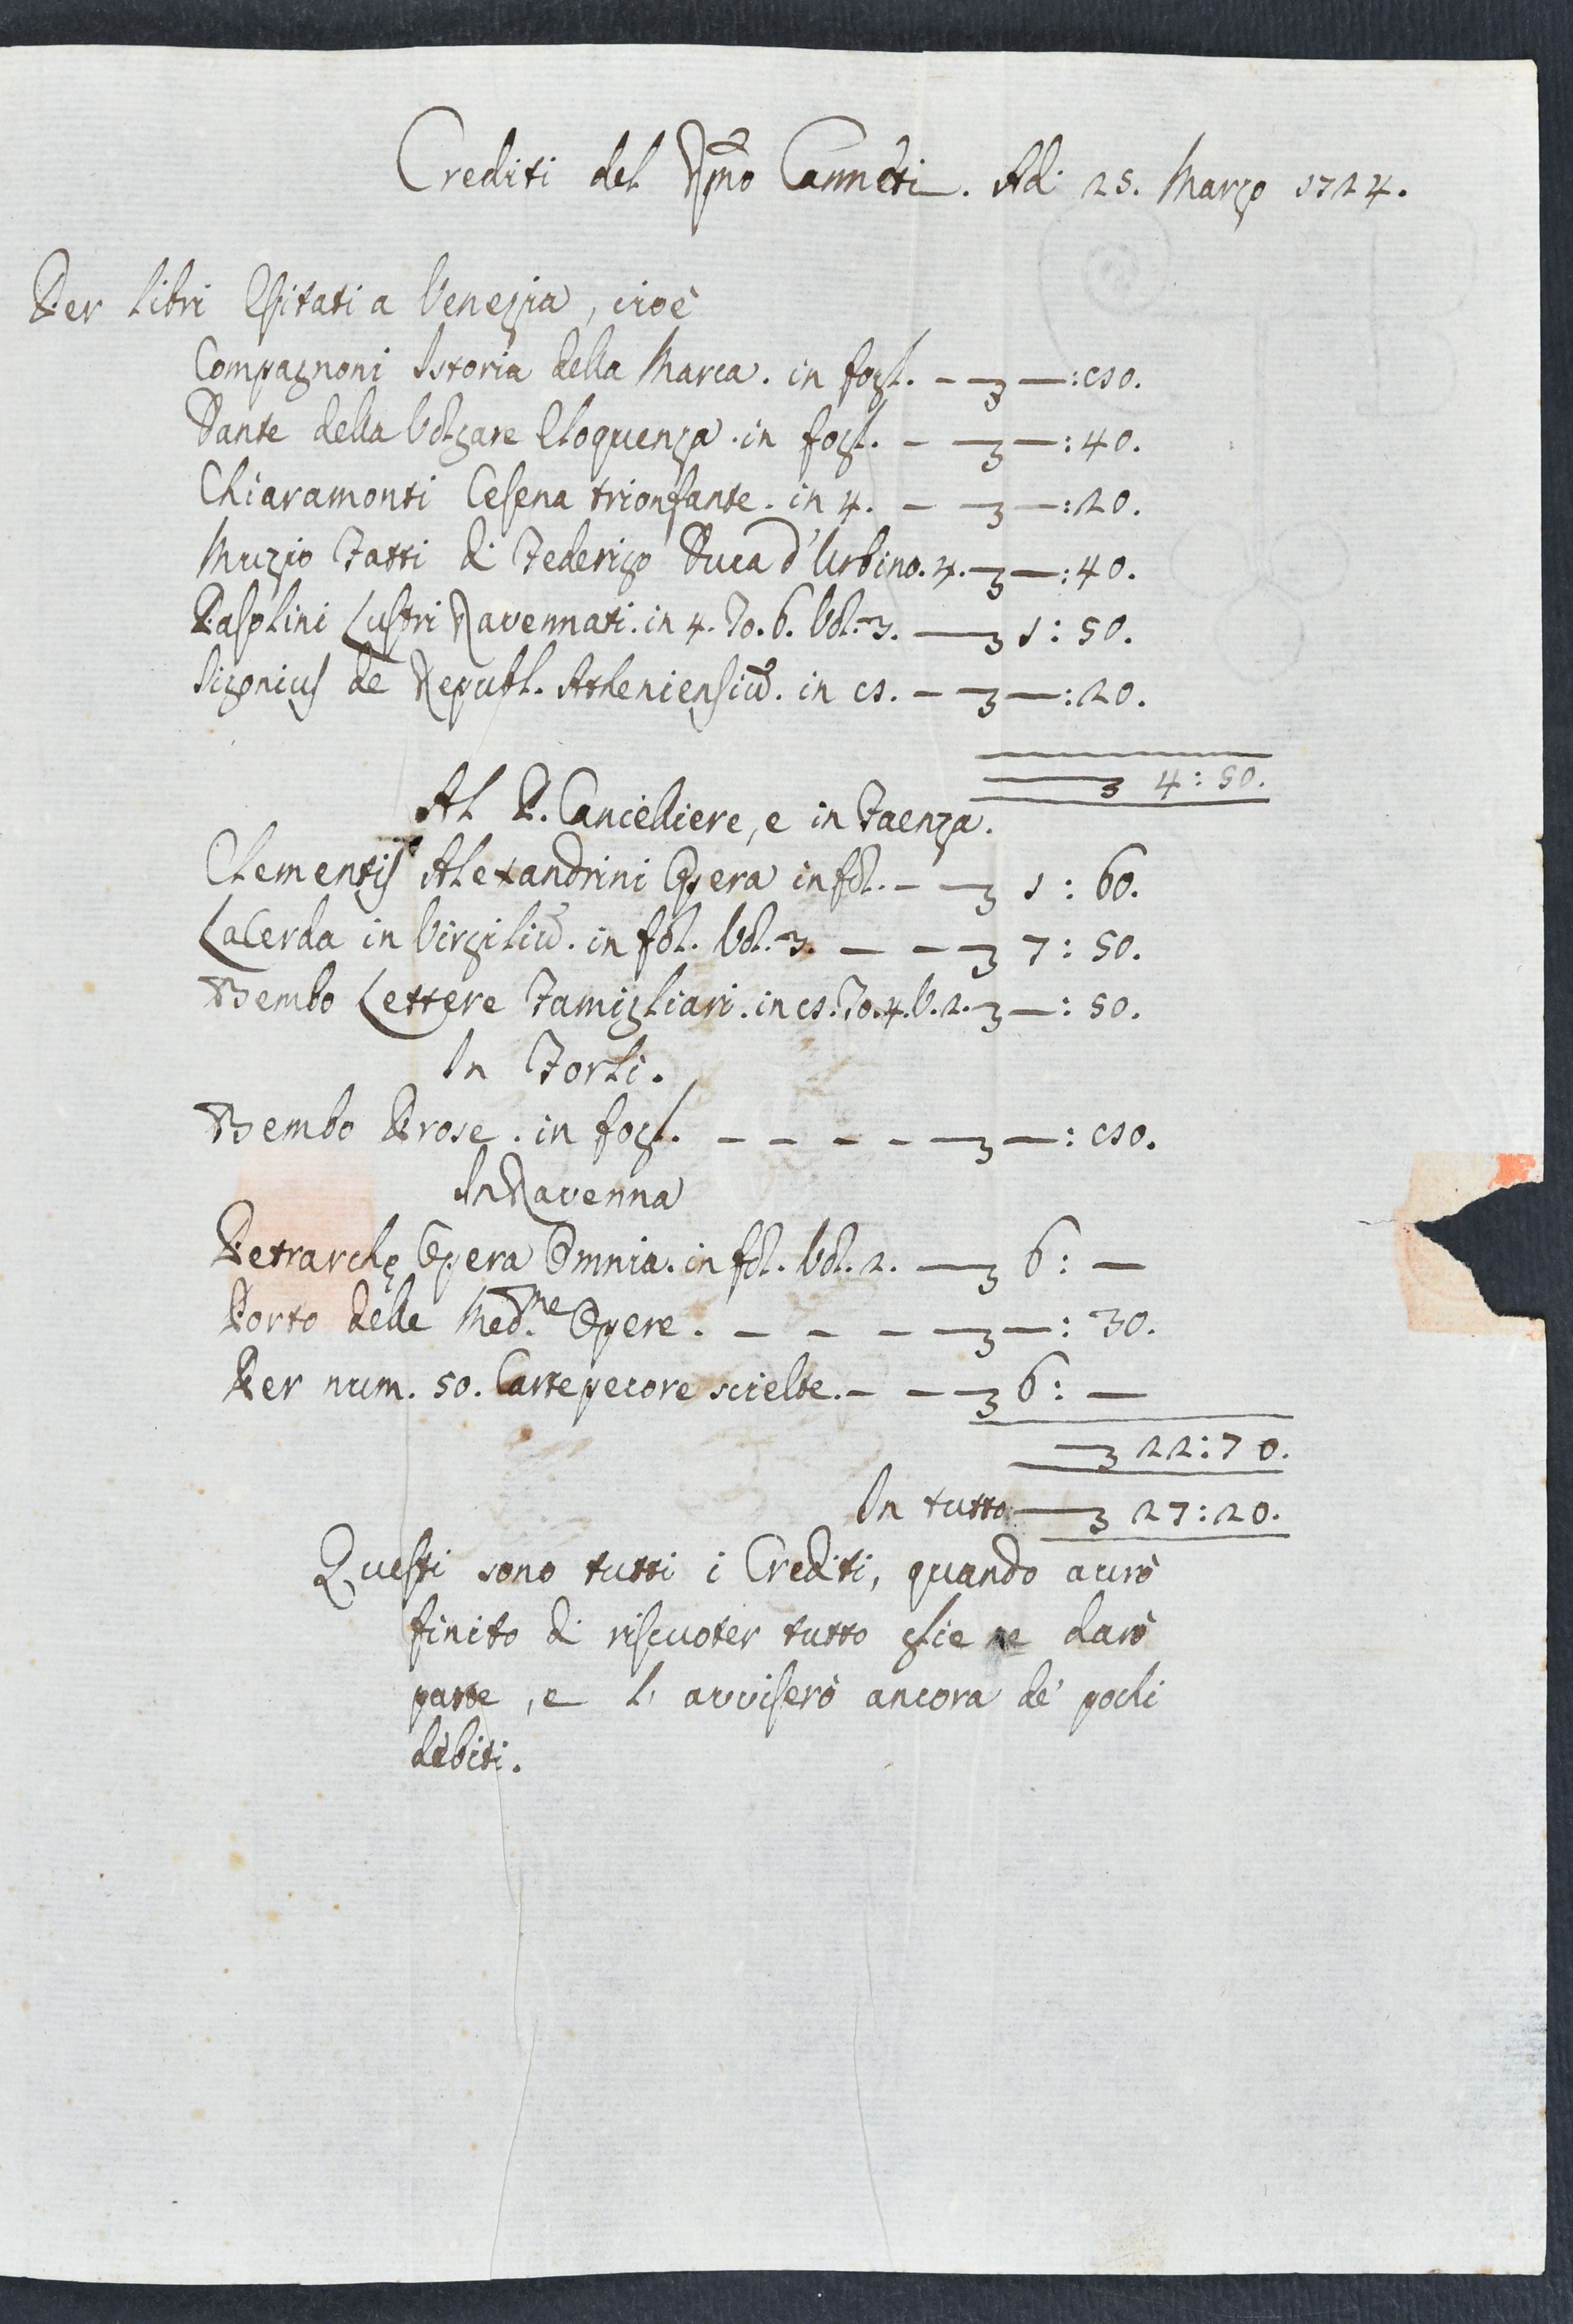 Crediti del Rmo Canneti. Adi 25. Marzo 1724.
Per libri Esitati a Venezia, cioè
Compagnoni Istoria della Marca. in fogl. - — 3 —: 80.
Dante della Volgare Eloquenza. in fogl. - — 3 —: 40.
Chiaramonti Cesena trionfante. in 4. - — 3 —: 20.
Muzio Fatti di Federigo Duca d'Urbino. 4. — 3 —: 40.
Pasolini Lustri Ravennati. in 4. To. 6. Vol. 3. — 3 1: 50.
Sigonius de Republ. Atheniensiu͂. in 8. - — 3 —: 20.
— 3 4: 50.
Al P. Cancelliere, e in Faenza.
Clementis Alexandrini Opera in fol. - — 3 1: 60.
LaCerda in Virgiliu͂. in fol. Vol. 3. - - — 3 7: 50.
Bembo Lettere Famigliari. in 8. To. 4. V. 2. 3 —: 50.
In Forlì.
Bembo Prose. in fogl. - - - - — 3 —: 80.
In Ravenna
Petrarchę Opera Omnia. in fol. Vol. 2. — 3 6: —
Porto delle Med.me Opere. - - - — 3 —: 30.
Per num. 50. Cartepecore scielte. - - — 3 6: —
— 3 22: 70.
In tutto — 3 27: 20.
Questi sono tutti i Crediti, quando avrò
finito di riscuoter tutto glie ne darò
parte, e l' avviserò ancora de' pochi
debiti.